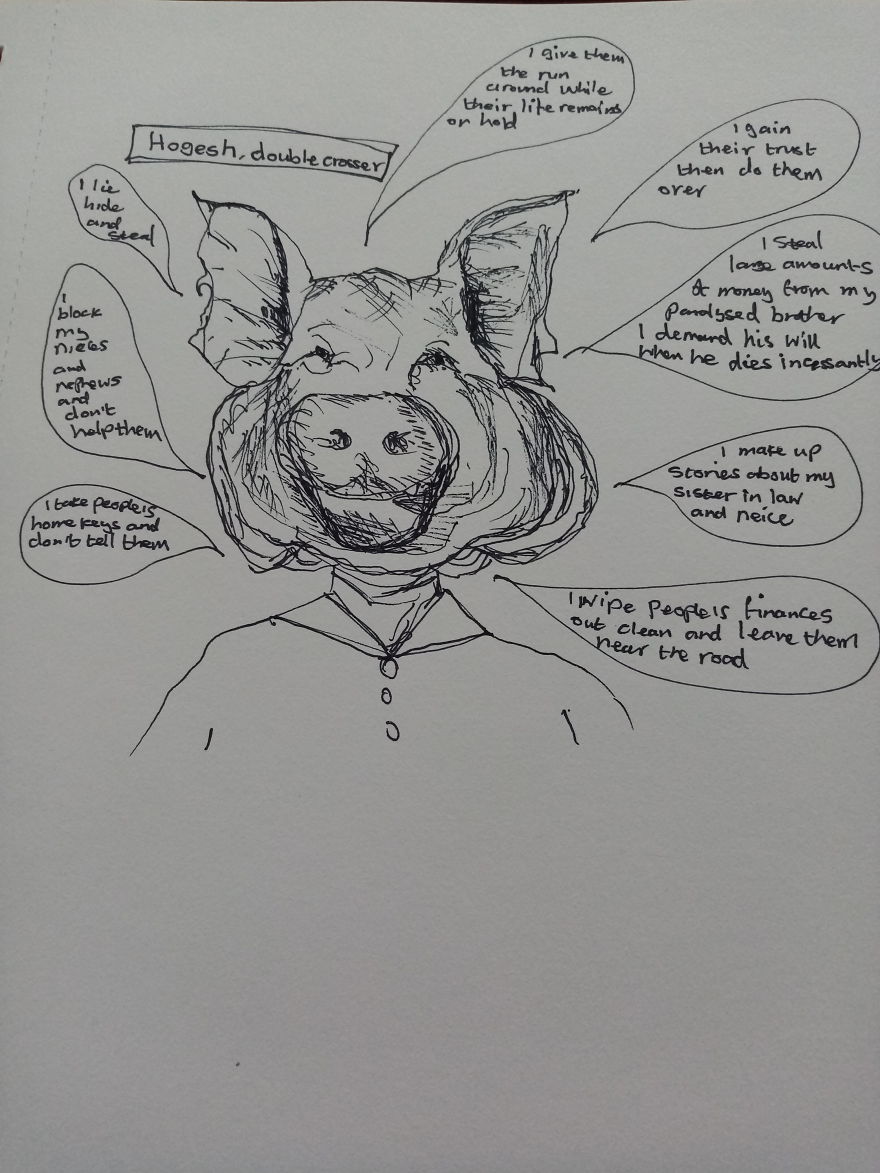 Hogesh, double crosser
I give them
the run
around while
their life remains
on hold
I gain
their trust
then do them
over
I lie
hide
and
steal
I steal
large amounts
of money from my
paralysed brother
I demand his will
when he dies incessantly
I
block
my
nieces
and
nephews
and
don't
help them
I make up
stories about my
sister in law
and neice
I take people's
home keys and
don't tell them
I wipe people's finances
out clean and leave them
near the road